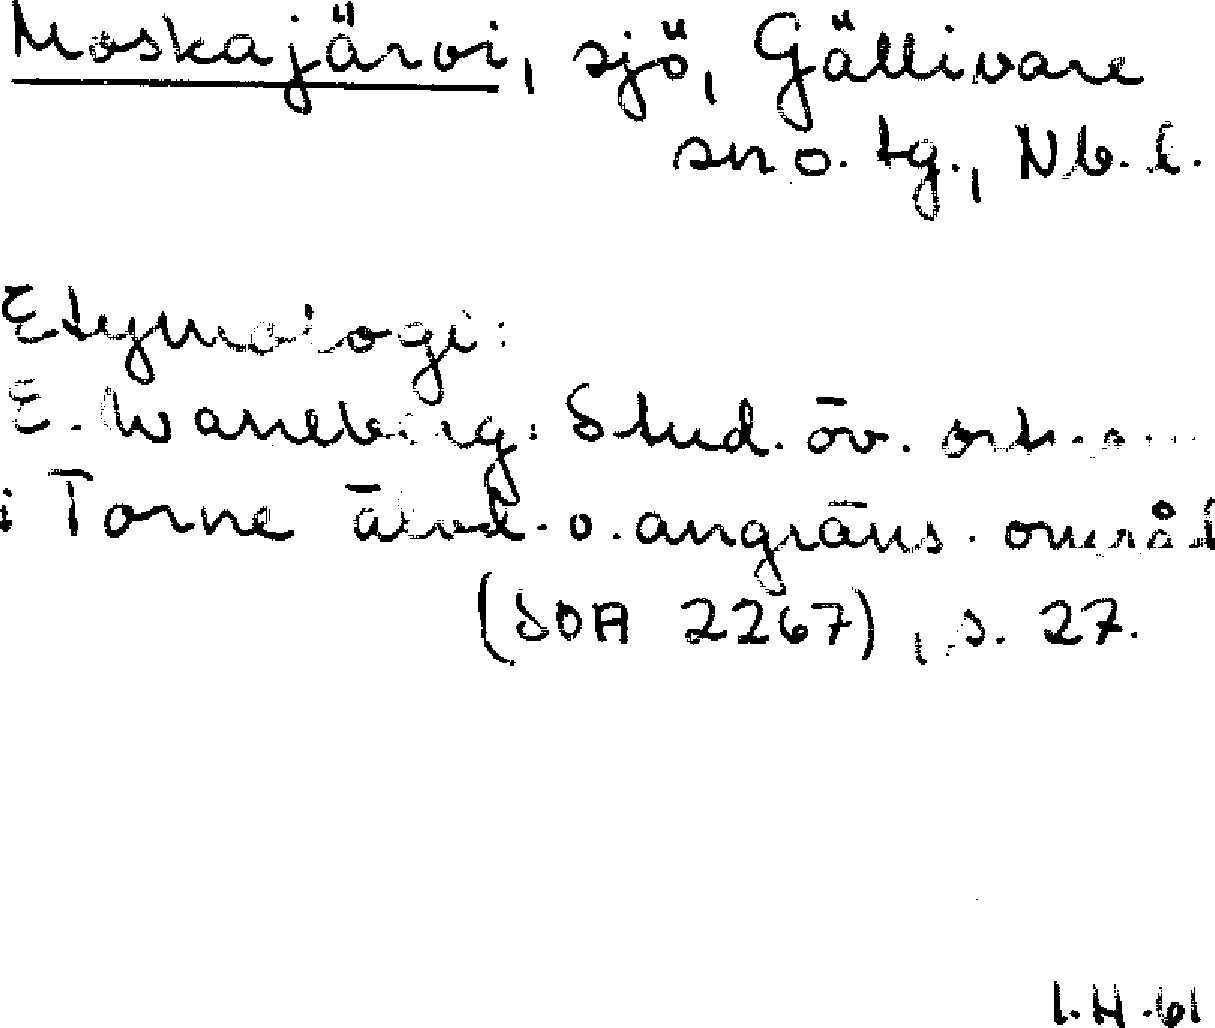 Moskajärvi, sjö, Gällivare
sn o. tg., Nb. l.
Etymologi:
E. Wahlberg: Stud. öv. ortn.
i Torne älvd. o. angräns. områd
(SOA 2267), s. 27.
I.H. 61